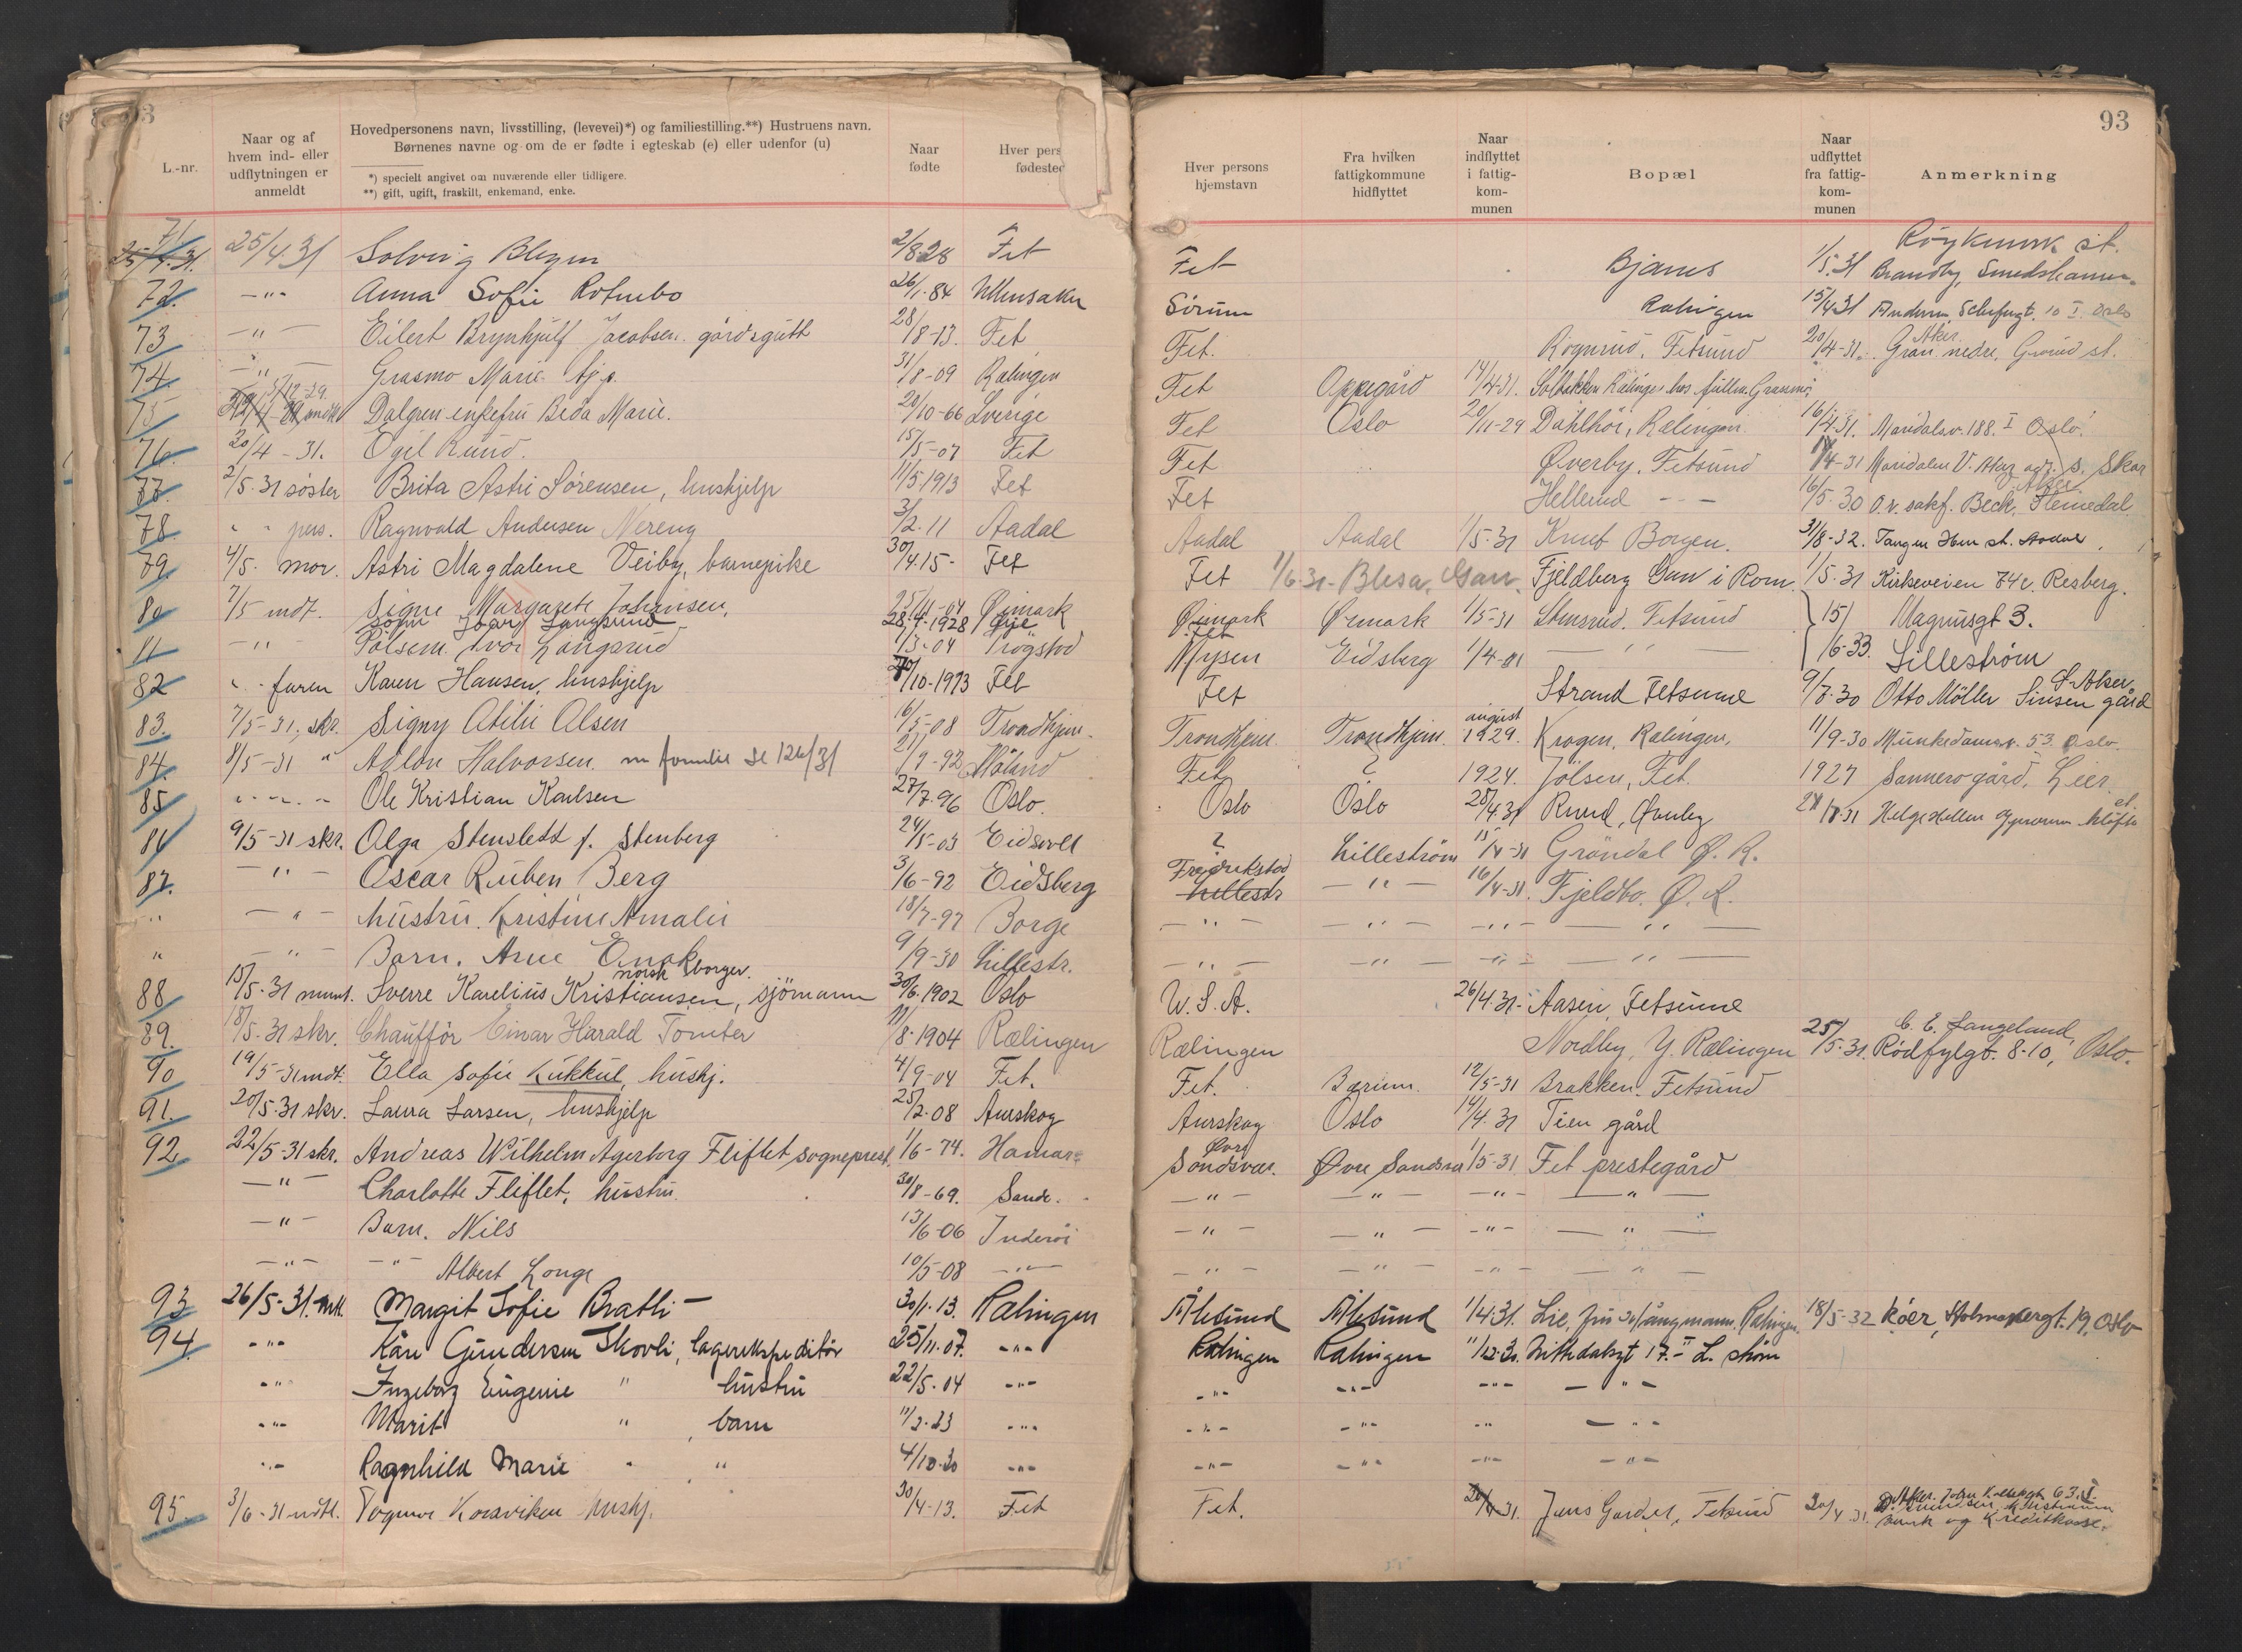 93
93
L.-nr.
Naar og af hvem ind- eller udflytningen er anmeldt
Hovedpersonens navn, livsstilling, (levevei)*) og familiestilling.**) Hustruens navn.
Børnenes navne og om de er fødte i egteskab (e) eller udenfor (u)
*) specielt angivet om nuværende eller tidligere.
**) gift, ugift, fraskilt, enkemand, enke.
Naar fødte
Hver pers fødested
Hver persons hjemstavn
Fra hvilken fattigkommune hidflyttet
Naar indflyttet i fattig-kom-munen
Bopæl
Naar udflyttet fra fattig-kom-munen
Anmerkning
71 25/4.31 Solveig 2/8 28 Fet Fet Bjanes 1/5.31 Røykenvik st.
72. -"- Anna Sofie Rotnebo 26/1.84 Ullensaker Sørum Rælingen 15/4 31 10 I. Oslo
73 -"- Eilert Brynhjulf Jacobsen. gårdsgutt 28/8-13. Fet Fet. Fetsund 20/4-31. Aker Gran nedre, Grorud st.
74 -"- Grasmo Marie 31/8-09 Rælingen Fet Oppegård 14/4-31. Solbakken Rælingen hos
75 Dalgren enkefru Beda Marie. 20/10-66 Sverige Fet Oslo 20/11-29 Dahlhöi, Rælingen 16/4 31. Maridalsv. 188. I Oslo.
76. 20/4-31. Egil Ruud. 15/5-07 Fet Fet Øverby. Fetsund 4-31 Maridalen V. Aker adr. s. Skar
77. 2/5.31 søster Brita Astri Sørensen, hushjelp 11/5 1913 Fet Fet Hellerud - - 16/5.30 O.r. sakf. Beck, Aker
78 " " pers. Ragnvald Andersen Nereng 3/2.11 Aadal Aadal Aadal 1/5.31 Knut Borgen. 31/8-32. Tangen Hen st. Aadal
79 4/5. mor. Astri Magdalene Veiby, barnepike 30/4.15- Fet Fet 1/6.31- Blesa, Gan. Fjeldberg Gan i Rom. 1/5.31 Kirkeveien 74c. Resberg.
80 7/5 mdt. Signe Margarete Johansen, 25/11-04 Øimark Øimark Ørmark 1/5-31 Stensrud. Fetsund 15/ Magnusgt 3.
sønn Langsrud 28.4.1928 Øije Fet
11 -"- Pølsem. Ivar Langsrud 1/3-04 Trøgstad Mysen Eidsberg 1/4-31 -"- 16-33. Lilleström
82 " - faren Karen Hansen, hushjelp /10-1913 Fet Fet Strand Fetsund 9/7.30 Otto Möller Sinsen gård Ø. Aker
83. 7/5-31, skr. Signy Atilie Olsen 16/5-08 Trondhjem. Trondhjem. Trondhjem. august 1929. Krogen, Rælingen, 11/9-30 Munkedamsv. 53 Oslo.
84. 8/5-31 " Halvorsen. m familie se 126/31 21/9-92 Høland Fet ? 1924. Jölsen, Fet. 1927 Sannerø gård, Lier.
85 " - " - " Ole Kristian Karlsen 27/7.96 Oslo. Oslo Oslo 28/4.31 Ruud, Øverby 27/8 31 st. Kløfta
86 9/5-31 skr. Olga Stensledt f. Stenberg 24/5-03 Eidsvoll ? Lilleström 15/4-31 Gröndal Ø. R.
87. -"- Oscar Ruben Berg 3/6-92 Eidsberg Fredrikstad Lillestr -"- 16/4-31. Fjeldbo. Ø. R.
" -"- hustru. Kristine Amalie 18/7-97 Borge -"- -"- -"- -"-
" -"- Barn. Arne Enok 9/9-30 Lillestr. -"- -"- -"- -"-
88 15/5-31 munt. Sverre Karelius Kristiansen, norsk borger. sjömann 30/6.1902 Oslo U.S.A. 26/4.31- Aasen, Fetsund
89. 18/5.31 skr. Chaufför Einar Harald Tomter 11/8.1904 Rælingen Rælingen Nordby, Y. Rælingen 25/5.31. C. E. Langeland, Rödfylgt. 8-10, Oslo.
90 19/5-31 mdt. Ella Sofie Kukkul, hushj. 4/9-04 Fet. Fet. Bærum. 12/5-31 Brakken. Fetsund
91. 20/5.31 skr. Laura Larsen, hushjelp 25/2.08 Aurskog Aurskog Oslo 14/4.31 Tien gård
92. 22/5-31 skr. Andreas Wilhelm Agerborg Fliflet sogneprest. 1/6-74. Hamar Øvre Sandsvær. Øvre Sandsvær 1/5-31 Fet prestegård
-"- Charlotte Fliflet, hustru. 30/8-69. Sande. -"- -"- -"- -"-
-"- Barn. Nils 13/6-06 Inderøi -"- -"- -"- -"-
-"- -"- Albert Lange 10/5-08 -"- -"- -"- -"- -"-
93 26/5-31. mtl. Margit Sofie Bratli - 30/1.13. Rælingen Ålesund Ålesund 1/4.31. Lie, Rælingen. 18/5-32 19, Oslo
94. -"- Kåre Gundersen Skovli, lagerekspeditör 25/11.07. -"- Rælingen Rælingen 1/12.30. Nittedalsgt 17.-II L.ström
-"- Ingeborg Eugenie " hustru 22/5-04 -"- -"- -"- -"- -"-
-"- Marit " barn 11/2.23 -"- -"- -"- -"- -"-
-"- Ragnhild Marie " " 4/10-30 -"- -"- -"- -"- -"-
95. 3/6-31 mdtl. hushj. 30/4-13. Fet Fet. 31. Jens Garder, Fetsund 30/4 31. bank og Kreditkasse.